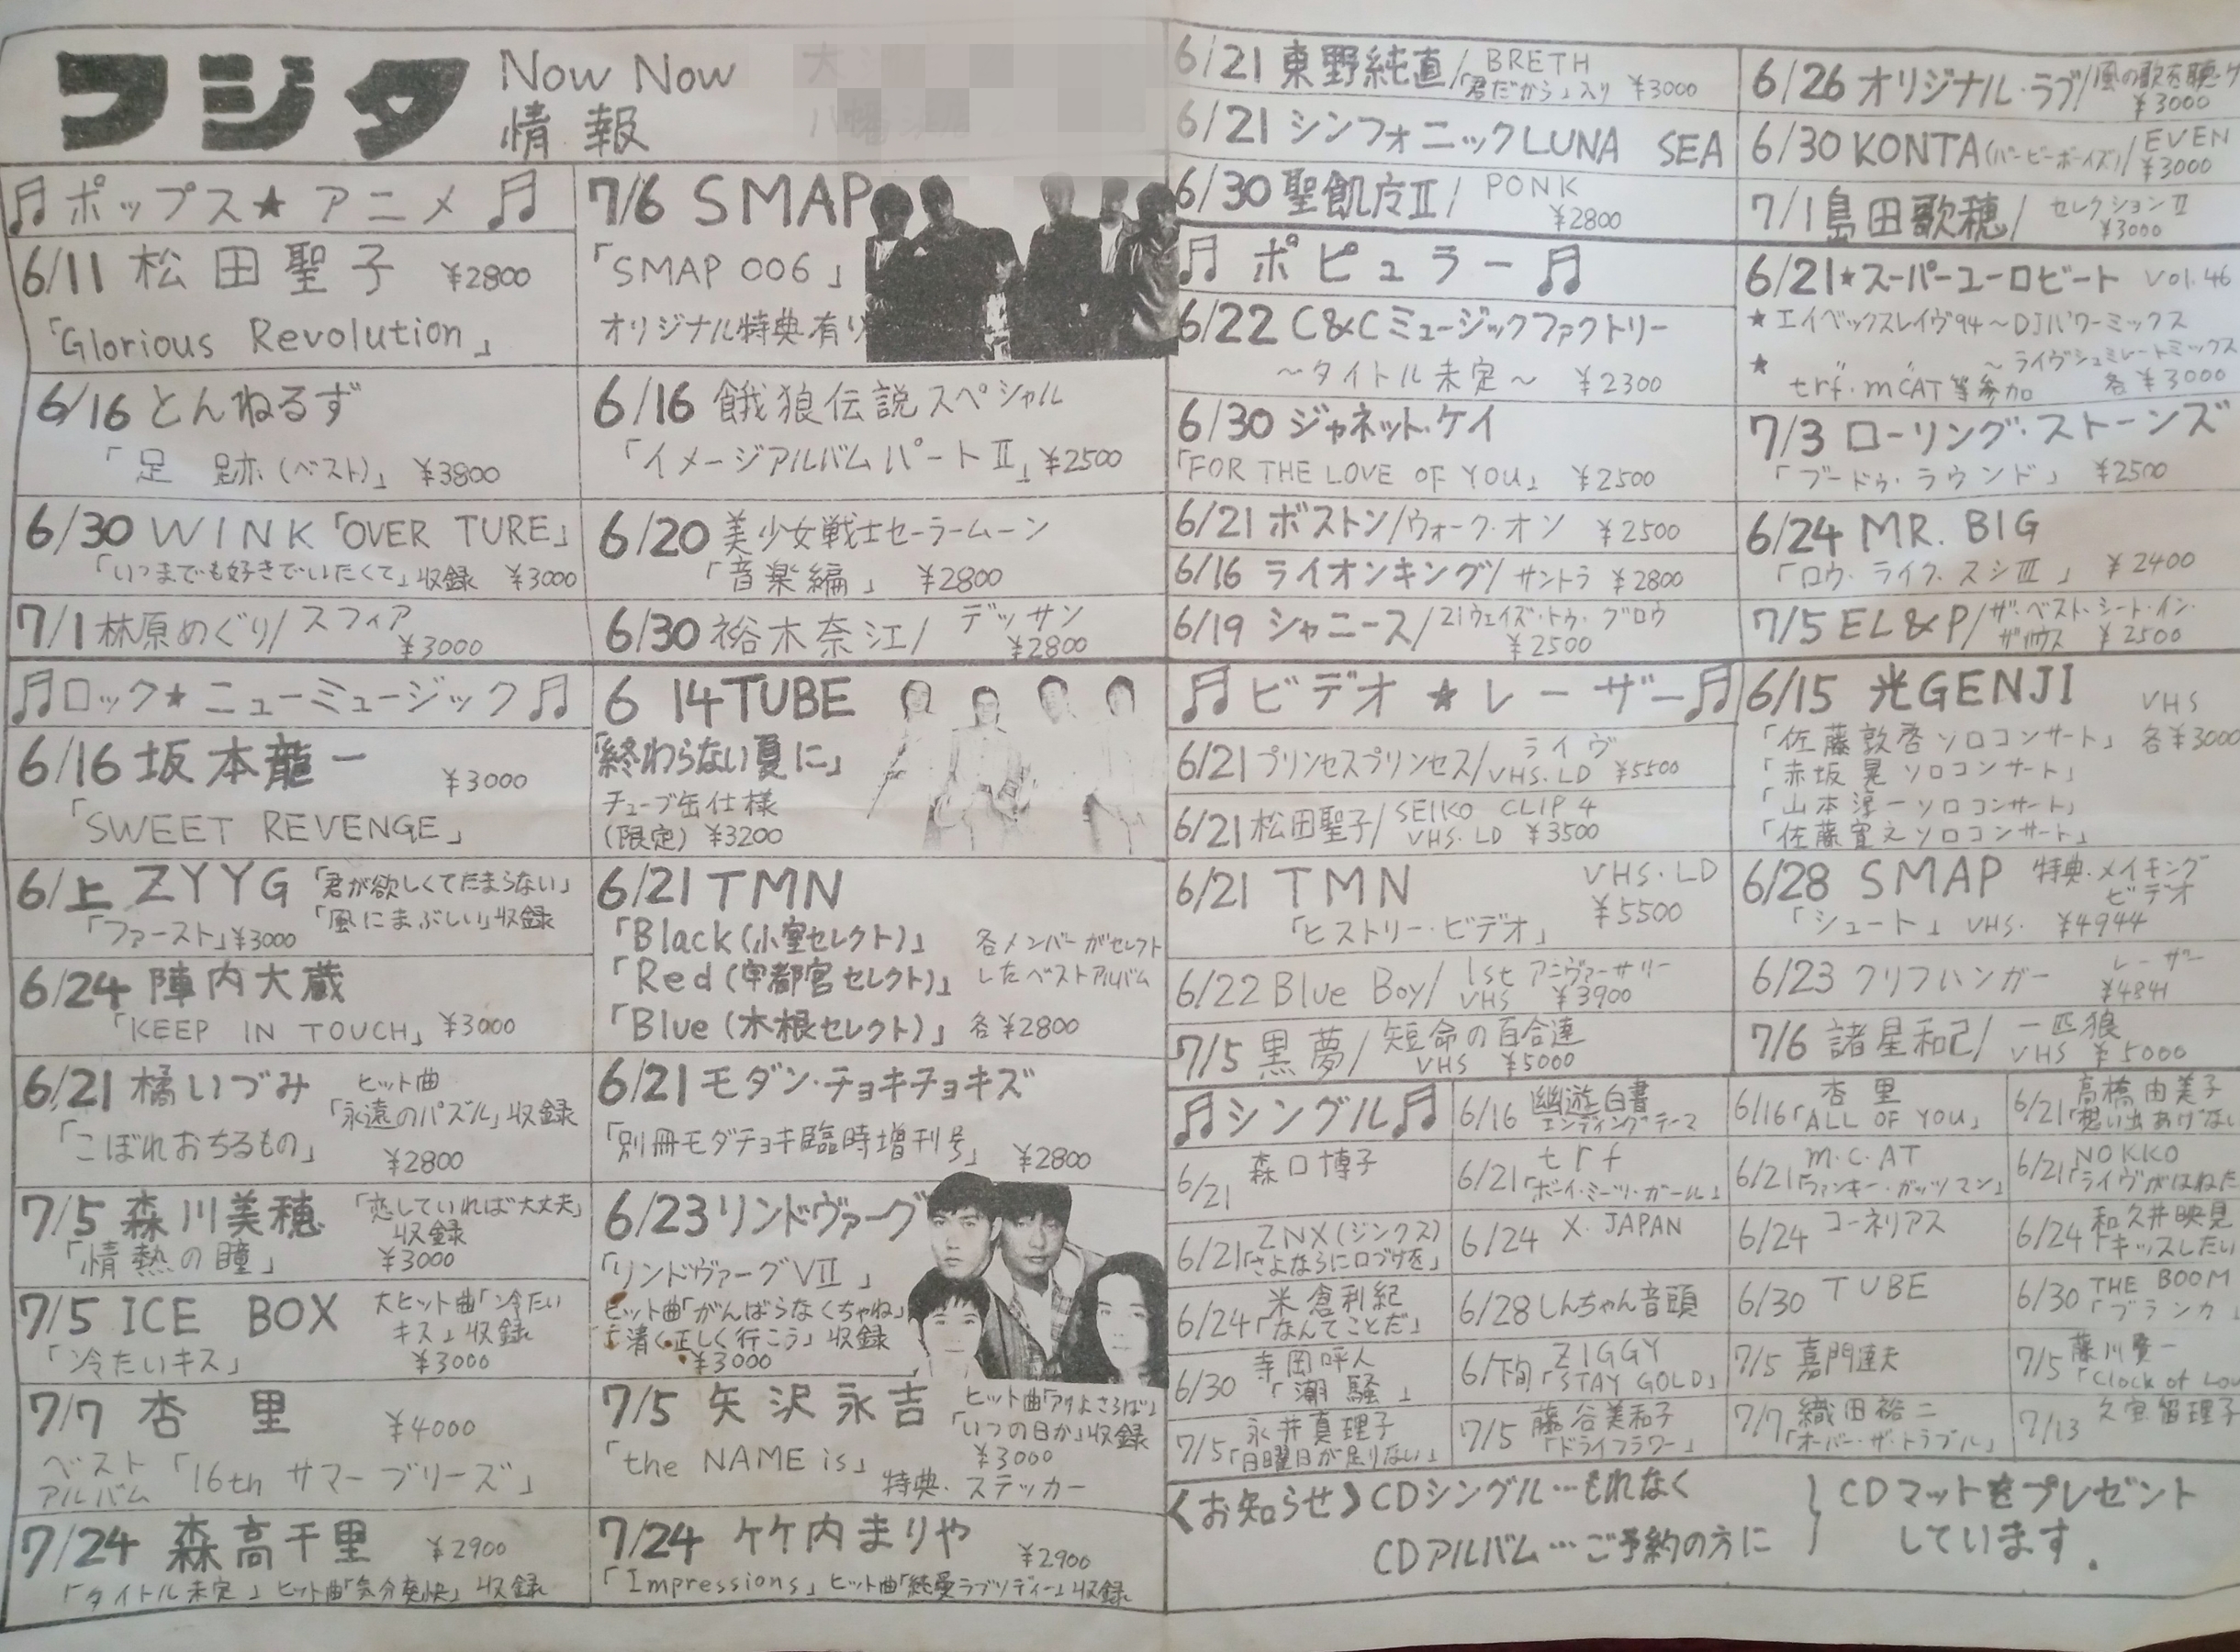 フジタ
Now Now
情報
♫ポップス★アニメ♫
6/11 松田聖子 ¥2800
「Glorious Revolution」
6/16 とんねるず
「足跡(ベスト)」 ¥3800
6/30 WINK「OVER TURE」
「いつまでも好きでいたくて」収録 ¥3000
7/1 林原めぐり/スフィア
¥3000
7/6 SMAP
「SMAP 006」
オリジナル特典有り
6/16 餓狼伝説スペシャル
「イメージアルバムパートⅡ」¥2500
6/20 美少女戦士セーラームーン
「音楽編」 ¥2800
6/30 裕木奈江/デッサン
¥2800
♫ロック★ニューミュージック♫
6/16 坂本龍一 ¥3000
「SWEET REVENGE」
6/上 ZYYG 「君が欲しくてたまらない」
「ファースト」¥3000 「風にまぶしい」収録
6/24 陣内大蔵
「KEEP IN TOUCH」 ¥3000
6/21 橘いづみ ヒット曲
「永遠のパズル」収録
「こぼれおちるもの」 ¥2800
7/5 森川美穂 「恋していれば大丈夫」
収録
「情熱の瞳」 ¥3000
7/5 ICE BOX 大ヒット曲「冷たい
キス」収録
「冷たいキス」 ¥3000
7/7 杏里 ¥4000
ベスト
アルバム「16th サマーブリーズ」
7/24 森高千里 ¥2900
「タイトル未定」ヒット曲「気分爽快」収録
6 14 TUBE
「終わらない夏に」
チューブ缶仕様
(限定) ¥3200
6/21 TMN
「Black(小室セレクト)」 各メンバーがセレクト
「Red(宇都宮セレクト)」 したベストアルバム
「Blue(木根セレクト)」 各¥2800
6/21 モダン・チョキチョキズ
「別冊モダチョキ臨時増刊号」 ¥2800
6/23 リンドヴァーグ
「リンドヴァーグⅦ」
ヒット曲「がんばらなくちゃね」
「清く正しく行こう」収録
¥3000
7/5 矢沢永吉 ヒット曲「アリよさらば」
「いつの日か」収録
「the NAME is」 ¥3000
特典・ステッカー
7/24 竹内まりや ¥2900
「Impressions」ヒット曲「純愛ラプソディー」収録
6/21 東野純直/BRETH
「君だから」入り ¥3000
6/21 シンフォニックLUNA SEA
6/30 聖飢魔Ⅱ/PONK
¥2800
6/26 オリジナル・ラブ/風の歌を聴け
¥3000
6/30 KONTA(バービーボーイズ)/EVEN
¥3000
7/1 島田歌穂/セレクションⅡ
¥3000
♫ポピュラー♫
6/22 C&Cミュージックファクトリー
～タイトル未定～ ¥2300
6/30 ジャネット・ケイ
「FOR THE LOVE OF YOU」 ¥2500
6/21 ボストン/ウォーク・オン ¥2500
6/16 ライオンキング/サントラ ¥2800
6/19 シャニース/21ウェイズ・トゥ・グロウ
¥2500
6/21★スーパーユーロビート Vol.46
★エイベックスレイヴ94～DJパワーミックス
★ ～ライヴシュミレートミックス
trf・m.c.AT等参加 各¥3000
7/3 ローリング・ストーンズ
「ブードゥ・ラウンド」 ¥2500
6/24 MR. BIG
「ロウ・ライフ・スシⅢ」 ¥2400
7/5 EL&P/ザ・ベスト・シート・イン・
ザ・ハウス ¥2500
♫ビデオ★レーザー♫
6/21 プリンセスプリンセス/ライヴ
VHS.LD ¥5500
6/21 松田聖子/SEIKO CLIP 4
VHS.LD ¥3500
6/21 TMN VHS・LD
「ヒストリー・ビデオ」 ¥5500
6/22 Blue Boy/1st アニヴァーサリー
VHS ¥3900
7/5 黒夢/短命の百合達
VHS ¥5000
6/15 光GENJI VHS
「佐藤敦啓ソロコンサート」 各¥3000
「赤坂晃ソロコンサート」
「山本淳一ソロコンサート」
「佐藤寛之ソロコンサート」
6/28 SMAP 特典・メイキング
ビデオ
「シュート」VHS. ¥4944
6/23 クリフハンガー レーザー
¥4841
7/6 諸星和己/一匹狼
VHS ¥5000
♫シングル♫
6/16 幽遊白書
エンディングテーマ
6/16 杏里
「ALL OF YOU」
6/21 高橋由美子
「思い出あげない
6/21 森口博子
6/21 trf
「ボーイ・ミーツ・ガール」
6/21 m.c.AT
「ファンキー・ガッツマン」
6/21 NOKKO
「ライヴがはねた
6/21 ZNX(ジンクス)
「さよならに口づけを」
6/24 X. JAPAN
6/24 コーネリアス
6/24 和久井映見
「キッスしたい
6/24 米倉利紀
「なんてことだ」
6/28 しんちゃん音頭
6/30 TUBE
6/30 THE BOOM
「ブランカ」
6/30 寺岡呼人
「潮騒」
6/下旬 ZIGGY
「STAY GOLD」
7/5 嘉門達夫
7/5 藤川賢一
「Clock of Lov
7/5 永井真理子
「日曜日が足りない」
7/5 藤谷美和子
「ドライフラワー」
7/7 織田裕二
「オーバー・ザ・トラブル」
7/13 久宝留理子
〈お知らせ〉CDシングル…もれなく
CDアルバム…ご予約の方に
CDマットをプレゼント
しています.